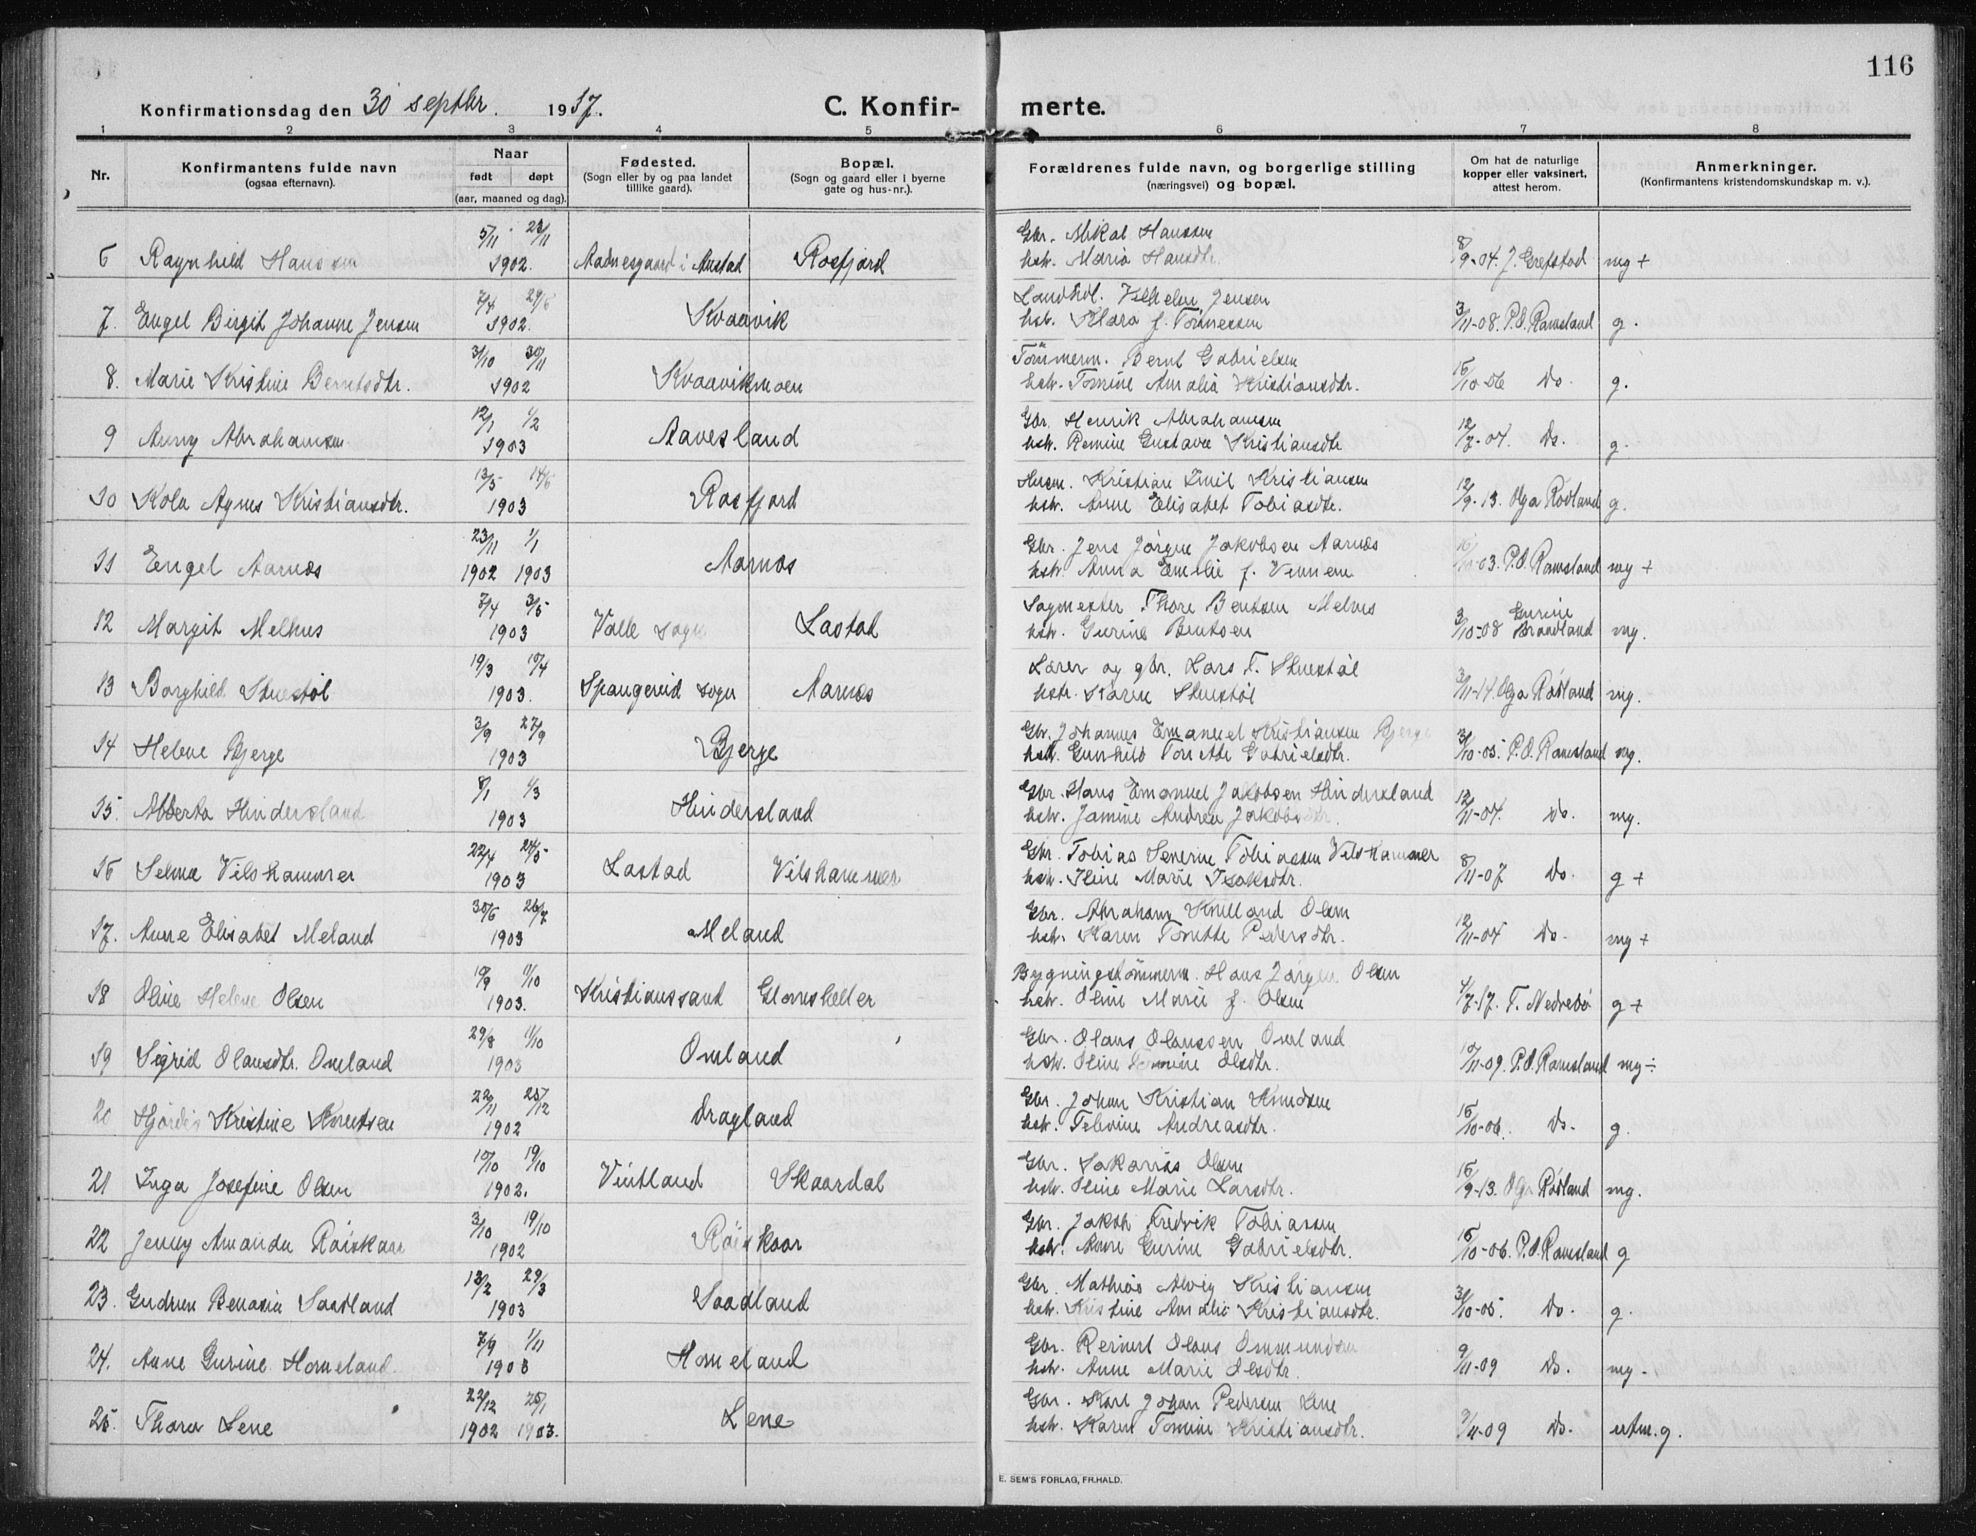 116
Konfirmationsdag den 30 septbr. 1917.
C. Konfir-merte.
1 2 3 4 5 6 7 8
Nr.
Konfirmantens fulde navn
(ogsaa efternavn).
Naar
født døpt
(aar, maaned og dag).
Fødested.
(Sogn eller by og paa landet
tillike gaard).
Bopæl.
(Sogn og gaard eller i byerne
gate og hus-nr.).
Forældrenes fulde navn, og borgerlige stilling
(næringsvei) og bopæl.
Om hat de naturlige
kopper eller vaksinert,
attest herom.
Anmerkninger.
(Konfirmantens kristendomskundskap m. v.).
5/11 23/11 Gbr. Mikal Hanssen
6 Ragnhild Hanssen 1902. i Austad Rosfjord hst. Maria Hansdtr. 8/9-04. J. Grefstad mg +
7/4 29/6 Landhdl. Vilhelm Jensen
7. Engel Birgit Johanne Jensen 1902. Kvaavik hst. Klara f. Tönnessen 3/11-08. P.O. Ramsland g.
3/10 30/11 Tömmerm. Bernt Gabrielsen
8. Marie Kristine Berntsdtr. 1902 Kvaavikmoen hst. Tomine Amalia Kristiansdtr. 15/10-06 Do. g.
12/1 1/2 Gbr. Henrik Abrahamsen
9 Anny Abrahamsen 1903 Aavesland hst. Remine Gustava Kristiansdtr 12/7-04. Do. g.
13/5 14/6 Husm. Kristian Emil Kristiansen
10 Kola Agnes Kristiansdtr. 1903 Rosfjord hst. Anne Elisabet Tobiasdtr. 12/9-13. Olga Rödland g.
23/11 1/1 Gbr. Jens Jörgen Jakobsen Aarnæs
11 Engel Aarnæs 1902 1903 Aarnæs hst. Anna Emelie f. -03. P.O. Ramsland mg +
7/4 3/5 Sagmester Thore Bentsen Melhus
12 Margit Melhus 1903 Valle sogn Lastad hst. Gurine Bentsen 3/10-08 Gurine Brandland mg.
19/3 10/4 Lærer og gbr. Lars T. Stuestöl
13 Borghild Stuestöl 1903. Spangereid sogn Aarnæs hst. Karen Stuestöl 3/11-14 Olga Rödland mg.
3/9 27/9 Gbr. Johannes Emanuel Kristiansen Bjerge
14 Helene Bjerge 1903 Bjerge hst. Gunhild Tonette Gabrielsdtr. 31/10-05. P.O. Ramsland mg.
8/1 1/3 Gbr. Hans Emanuel Jakobsen Hindersland
15. Alberta Hindersland 1903 Hindersland hst. Jamine Andrea Jakobsdtr. 12/11-04. Do. mg.
22/4 24/5 Gbr. Tobias Severin Tobiassen Vilskammer
16 Selma Vilskammer 1903 Lastad Vilskammer hst. Iline Marie Isaksdtr. 8/11-07 Do. g +
30/6 26/7 Gbr. Abraham Olsen
17. Anne Elisabet Meland 1903 Meland hst. Karen Tonette Pedersdtr. 12/11-04 Do. mg +
10/9 11/10 Bygningstömmerm. Hans Jørgen Olsen
18 Oline Helene Olsen 1903. Kristianssand hst. Oline Marie f. Olsen 1/7-17. T. Nedrebö g +
29/8 11/10 Gbr. Olaus Olaussen Omland
19 Sigrid Olausdtr. Omland 1903 Omland hst. Oline Olsdtr. 10/11-09. P.O. Ramsland mg ÷
22/11 25/12 Gbr. Johan Kristian Knudsen
20 Hjördis Kristine Knutsen 1902 Dragland hst. Andreasdtr. 15/10-06. Do. g.
10/10 19/10 Gbr. Sakarias Olsen
21 Inga Josefine Olsen 1902. Vintland Skaardal hst. Oline Marie Larsdtr. 15/9-13. Rödland mg.
3/10 19/10 Gbr. Jakob Fredrik Tobiassen
22 Jenny Amanda Röiskaar 1902 Röiskaar hst. Anne Gurine Gabrielsdtr. 15/10-06. P.O. Ramsland g
13/2 29/3 Gbr. Mathias Alvig Kristiansen
23. Gudrun Benaria Saadland 1903 Saadland hst. Kristine Amalie Kristiansdtr. 31/10-05. Do. g.
7/9 1/11 Gbr. Reinert Olaus Ommundsen
24. Anne Gurine Homeland 1903 Homeland hst. Anne Marie Olsdtr. 9/11-09 Do. mg -.
22/12 25/1 Gbr. Karl Johan Pedersen Lene
25 Thora Lene 1902 1903. Lene hst. Karen Tomine Kristiansdtr. 9/11-09 Do. utm. g.
E. SEM'S FORLAG, FR.HALD.